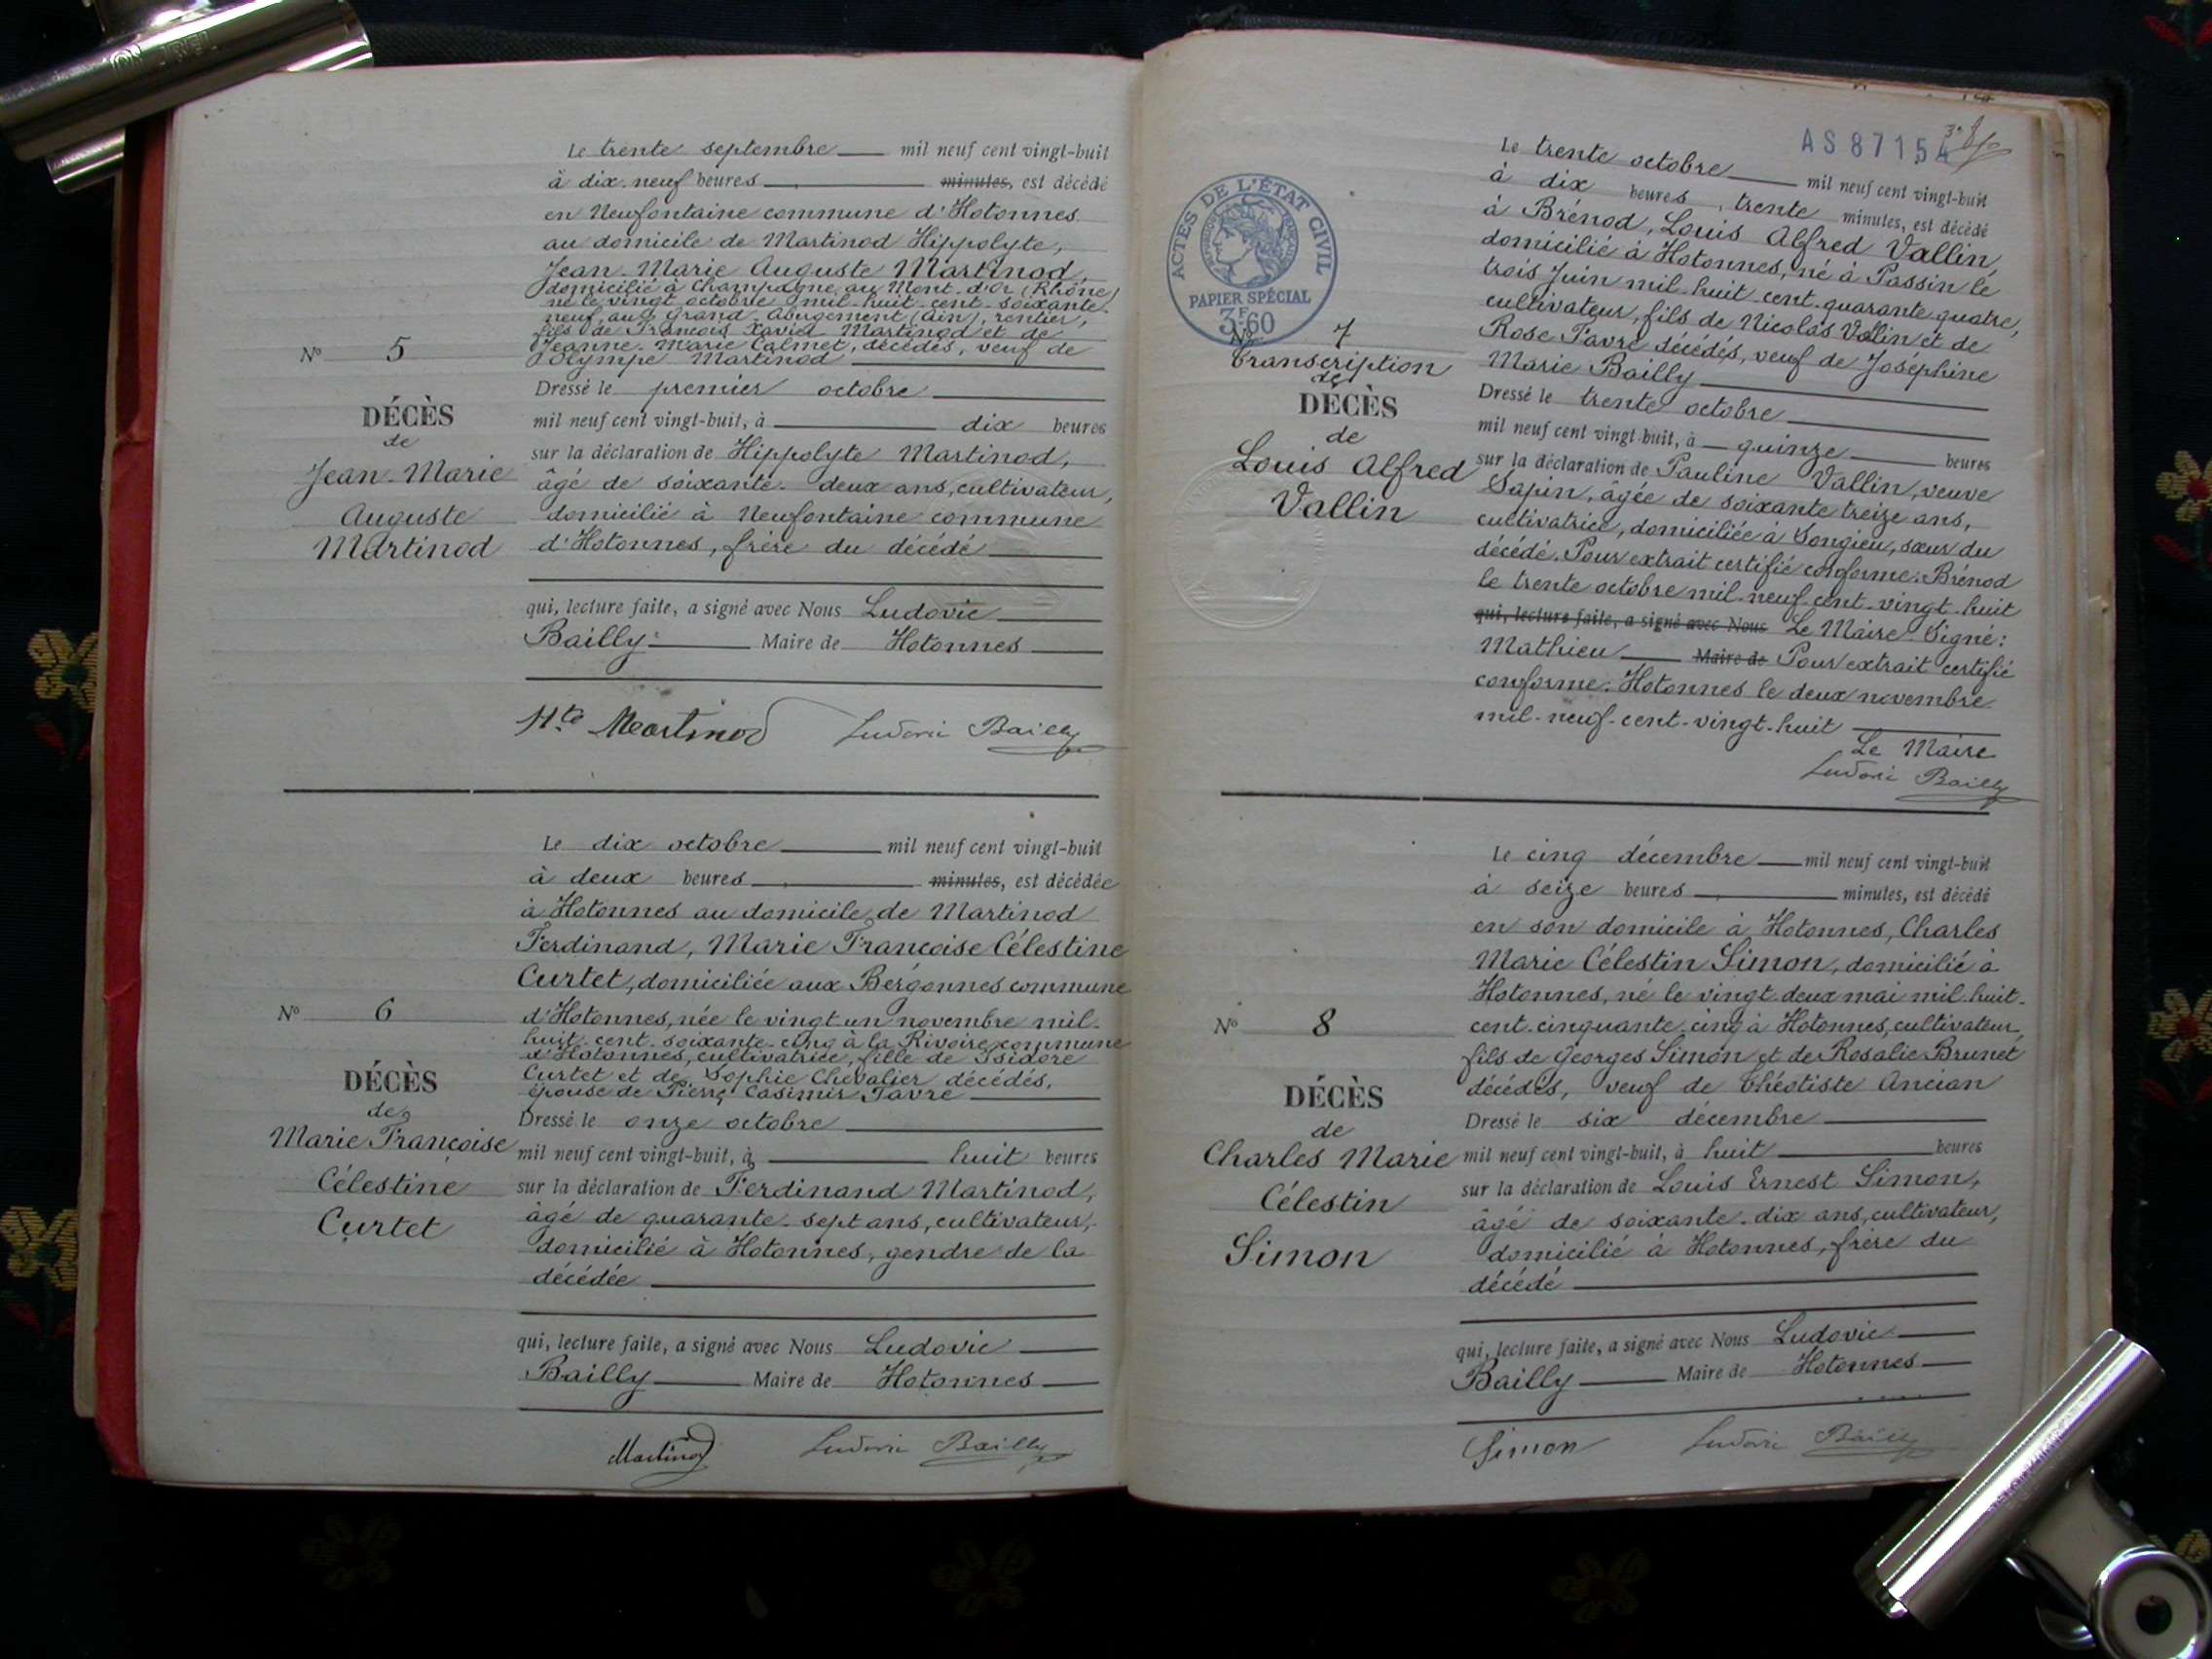 Le trente septembre mil neuf cent vingt-huit
à dix-neuf heures minutes, est décédé
en Neufontaine commune d'Hotonnes
au domicile de Martinod Hippolyte,
Jean-Marie Auguste Martinod,
domicilié à Champagne au Mont-d'Or (Rhône)
né le vingt octobre mil-huit-cent-soixante-
neuf, au Grand Abergement (Ain), rentier,
fils de François Xavier Martinod et de
Jeanne-Marie Calmet, décédés, veuf de
Olympe Martinod
Nº 5
DÉCÈS
de
Jean-Marie
Auguste
Martinod
Dressé le premier octobre
mil neuf cent vingt-huit, à dix heures
sur la déclaration de Hippolyte Martinod,
âgé de soixante-deux ans, cultivateur,
domicilié à Neufontaine commune
d'Hotonnes, frère du décédé
qui, lecture faite, a signé avec Nous Ludovic
Bailly Maire de Hotonnes
Hte Martinod Ludovic Bailly
Le dix octobre mil neuf cent vingt-huit
à deux heures minutes, est décédée
à Hotonnes au domicile de Martinod
Ferdinand, Marie Françoise Célestine
Curtet, domiciliée aux Bergonnes commune
d'Hotonnes, née le vingt-un novembre mil-
huit-cent-soixante-cinq à la Rivoire commune
d'Hotonnes, cultivatrice, fille de Isidore
Curtet et de Sophie Chevalier décédés,
épouse de Pierre Casimir Favre
Nº 6
DÉCÈS
de
Marie Françoise
Célestine
Curtet
Dressé le onze octobre
mil neuf cent vingt-huit, à huit heures
sur la déclaration de Ferdinand Martinod,
âgé de quarante-sept ans, cultivateur,
domicilié à Hotonnes, gendre de la
décédée
qui, lecture faite, a signé avec Nous Ludovic
Bailly Maire de Hotonnes
Martinod Ludovic Bailly
AS 87154
ACTES DE L'ÉTAT CIVIL
PAPIER SPÉCIAL
3F60
Le trente octobre mil neuf cent vingt-huit
à dix heures, trente minutes, est décédé
à Brénod, Louis Alfred Vallin,
domicilié à Hotonnes, né à Passin le
trois Juin mil-huit-cent-quarante-quatre,
cultivateur, fils de Nicolas Vallin et de
Rose Favre décédés, veuf de Joséphine
Marie Bailly
Nº 7
Transcription
de
DÉCÈS
de
Louis Alfred
Vallin
Dressé le trente octobre
mil neuf cent vingt-huit, à quinze heures
sur la déclaration de Pauline Vallin, veuve
Sapin, âgée de soixante treize ans,
cultivatrice, domiciliée à Songieu, sœur du
décédé. Pour extrait certifié conforme. Brénod
le trente octobre mil-neuf-cent-vingt-huit
qui, lecture faite, a signé avec Nous Le Maire Signé:
Mathieu Maire de Pour extrait certifié
conforme. Hotonnes le deux novembre
mil-neuf-cent-vingt-huit
Le Maire
Ludovic Bailly
Le cinq décembre mil neuf cent vingt-huit
à seize heures minutes, est décédé
en son domicile à Hotonnes, Charles
Marie Célestin Simon, domicilié à
Hotonnes, né le vingt-deux mai mil-huit-
cent-cinquante-cinq à Hotonnes, cultivateur,
fils de Georges Simon et de Rosalie Brunet
décédés, veuf de Théotiste Ancian
Nº 8
DÉCÈS
de
Charles Marie
Célestin
Simon
Dressé le six décembre
mil neuf cent vingt-huit, à huit heures
sur la déclaration de Louis Ernest Simon,
âgé de soixante-dix ans, cultivateur,
domicilié à Hotonnes, frère du
décédé
qui, lecture faite, a signé avec Nous Ludovic
Bailly Maire de Hotonnes
Simon Ludovic Bailly